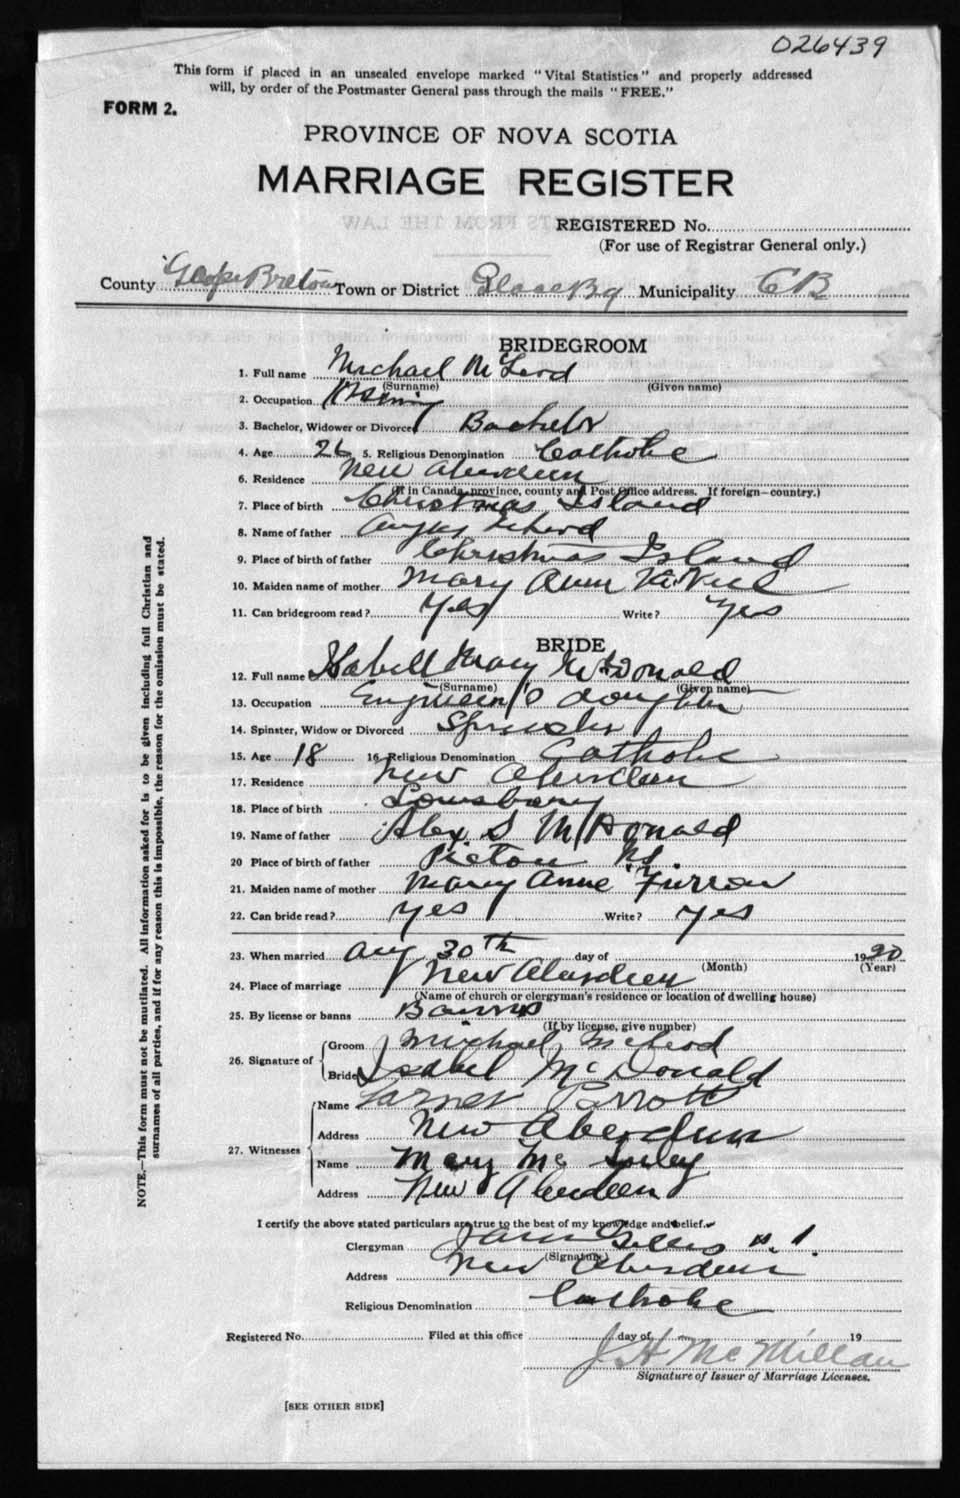 026439
This form if placed in an unsealed envelope marked "Vital Statistics" and properly addressed
will, by order of the Postmaster General pass through the mails "FREE."
FORM 2.
PROVINCE OF NOVA SCOTIA
MARRIAGE REGISTER
REGISTERED No.
(For use of Registrar General only.)
County Cape Breton Town or District Glace Bay Municipality CB
BRIDEGROOM
1. Full name Michael McLeod
(Surname) (Given name)
2. Occupation
3. Bachelor, Widower or Divorced Bachelor
4. Age 26 5. Religious Denomination Catholic
6. Residence New Aberdeen
(If in Canada, province, county and Post Office address. If foreign—country.)
7. Place of birth Christmas Island
8. Name of father Angus McLeod
9. Place of birth of father Christmas Island
10. Maiden name of mother Mary Ann McNeil
11. Can bridegroom read? Yes Write? Yes
BRIDE
12. Full name Isabell Mary McDonald
(Surname) (Given name)
13. Occupation Engineer's daughter
14. Spinster, Widow or Divorced Spinster
15. Age 18 16. Religious Denomination Catholic
17. Residence New Aberdeen
18. Place of birth Louisbourg
19. Name of father Alex. S McDonald
20 Place of birth of father Pictou N.S.
21. Maiden name of mother Mary Anne Furrow
22. Can bride read? yes Write? yes
23. When married Aug 30th day of 1920
(Month) (Year)
24. Place of marriage New Aberdeen
(Name of church or clergyman's residence or location of dwelling house)
25. By license or banns Banns
(If by license, give number)
26. Signature of Groom Michael McLeod
Bride Isabel McDonald
27. Witnesses Name Parrott
Address New Aberdeen
Name Mary Mc
Address New Aberdeen
I certify the above stated particulars are true to the best of my knowledge and belief.
Clergyman Gillis
(Signature)
Address New Aberdeen
Religious Denomination Catholic
Registered No. Filed at this office day of 19
J H McMillan
Signature of Issuer of Marriage Licenses.
[SEE OTHER SIDE]
NOTE.—This form must not be mutilated. All information asked for is to be given including full Christian and
surnames of all parties, and if for any reason this is impossible, the reason for the omission must be stated.